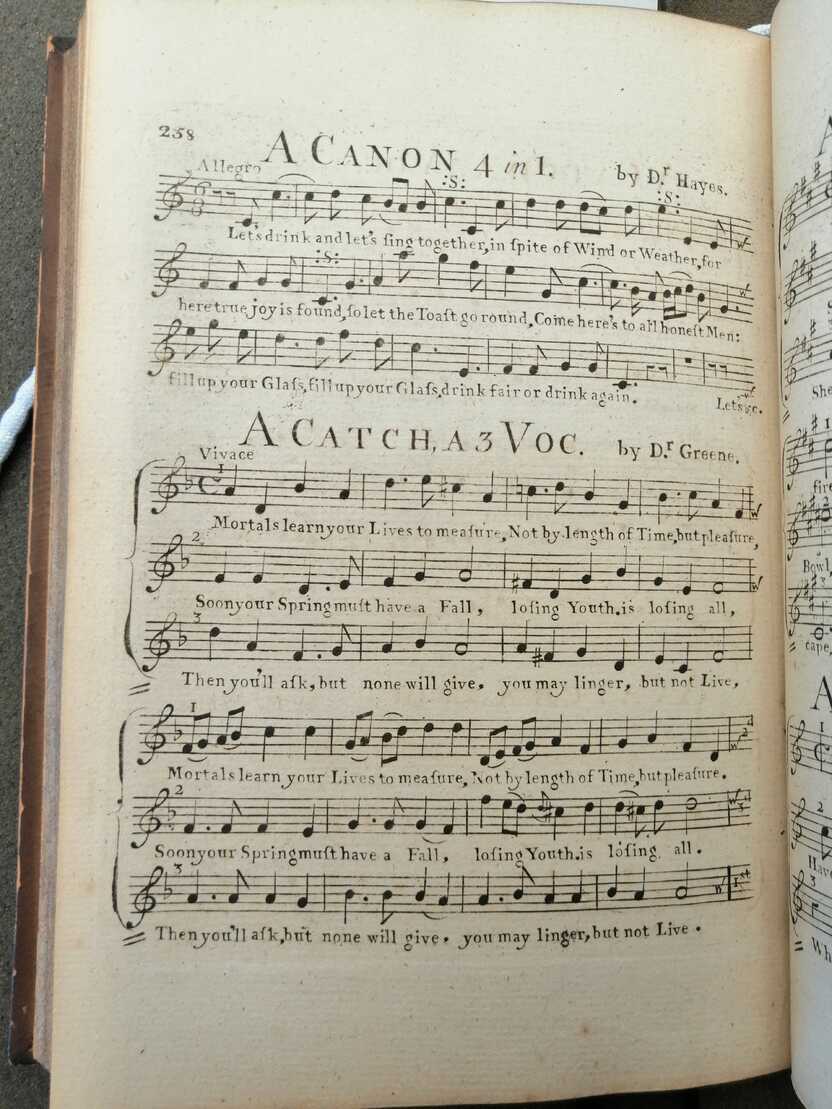 238
A CANON 4 in 1. by D.r Hayes.
Allegro
:S: :S:
Let's drink and let's ſing together, in ſpite of Wind or Weather, for
:S:
here true joy is found, ſo let the Toaſt go round, Come here's to all honeſt Men:
fill up your Glaſs, fill up your Glaſs, drink fair or drink again. Let's &c.
A CATCH, A 3 VOC. by D.r Greene.
Vivace
1
Mortals learn your Lives to meaſure, Not by length of Time, but pleaſure,
2
Soon your Spring muſt have a Fall, loſing Youth is loſing all,
3
Then you'll aſk, but none will give, you may linger, but not Live,
1
Mortals learn your Lives to meaſure, Not by length of Time, but pleaſure.
2
Soon your Spring muſt have a Fall, loſing Youth is loſing all.
3
1st
Then you'll aſk, but none will give, you may linger, but not Live.
She
fire
Bowl,
cape,
Have
Wh